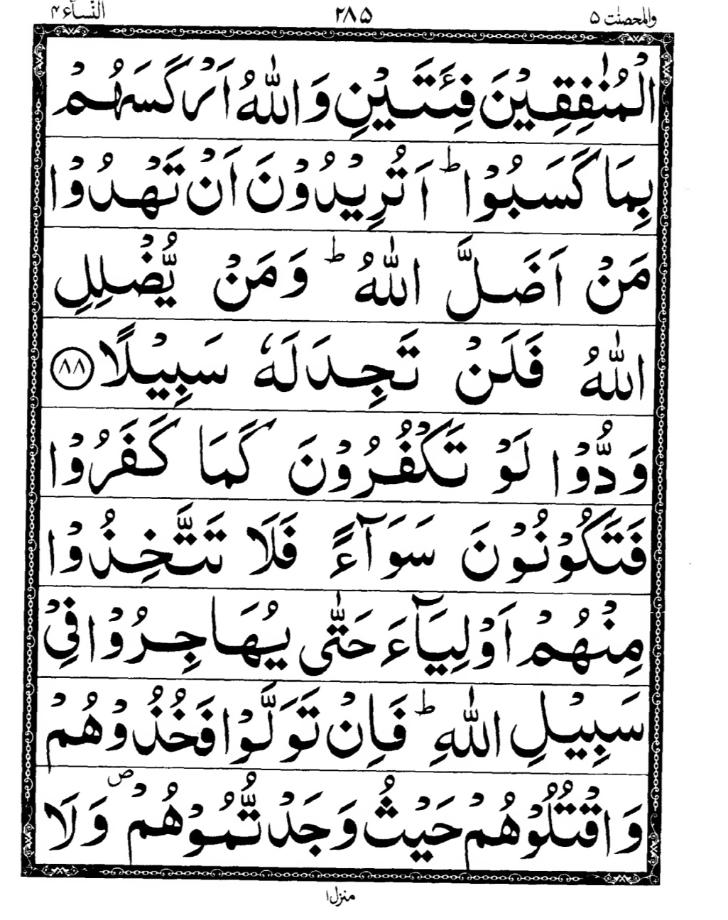 والمحصنت ۵ ۲۸۵ النسآء ۴
الْمُنٰفِقِيْنَ فِئَتَيْنِ وَاللّٰهُ اَرْكَسَهُمْ
بِمَا كَسَبُوْا ؕ اَتُرِيْدُوْنَ اَنْ تَهْدُوْا
مَنْ اَضَلَّ اللّٰهُ ؕ وَمَنْ يُّضْلِلِ
اللّٰهُ فَلَنْ تَجِدَ لَهٗ سَبِيْلًا ﴿۸۸﴾
وَدُّوْا لَوْ تَكْفُرُوْنَ كَمَا كَفَرُوْا
فَتَكُوْنُوْنَ سَوَآءً فَلَا تَتَّخِذُوْا
مِنْهُمْ اَوْلِيَآءَ حَتّٰى يُهَاجِرُوْا فِيْ
سَبِيْلِ اللّٰهِ ؕ فَاِنْ تَوَلَّوْا فَخُذُوْهُمْ
وَاقْتُلُوْهُمْ حَيْثُ وَجَدْتُّمُوْهُمْ ۪ وَلَا
منزل ۱